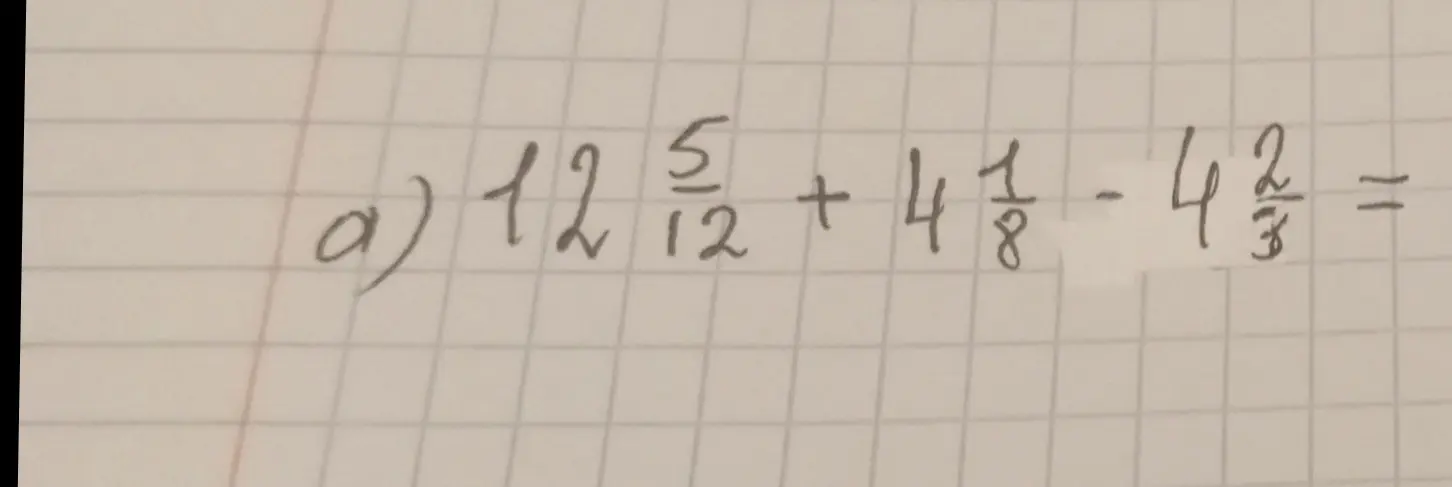 a) 12 5/12 + 4 1/8 - 4 2/3 =